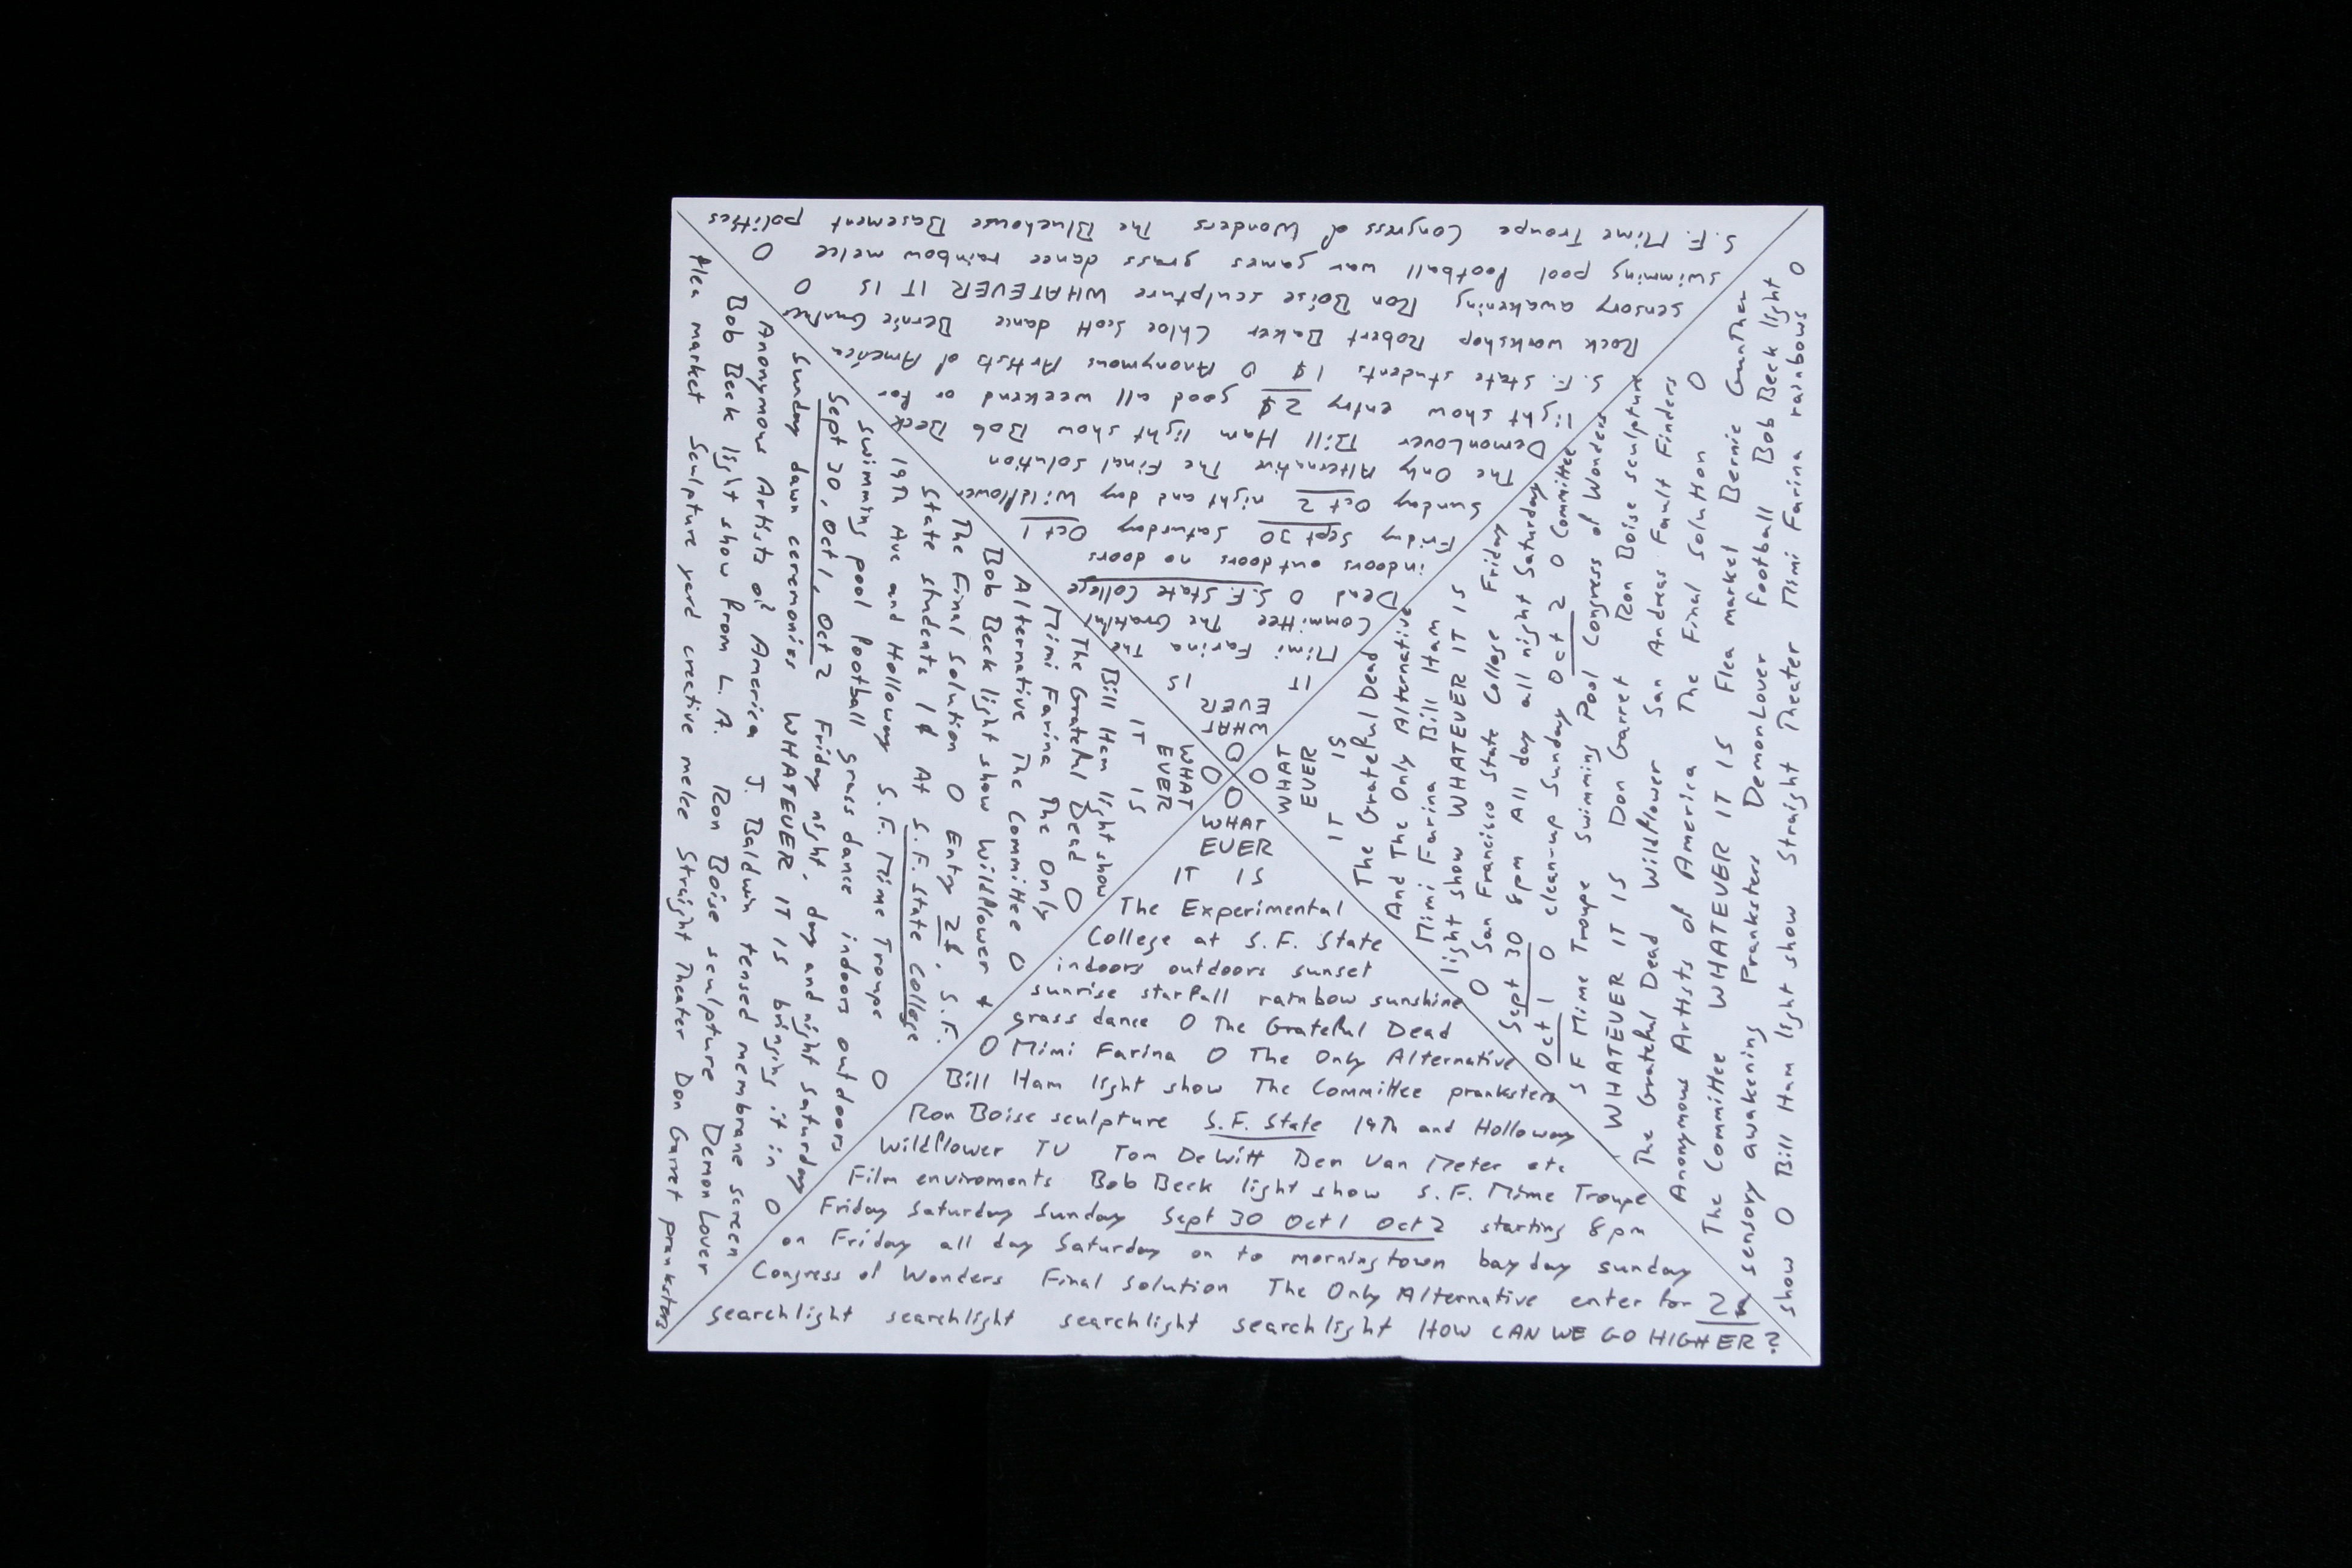 O
WHAT
EVER
IT IS
The Experimental
College at S.F. State
indoors outdoors sunset
sunrise starfall rainbow sunshine
grass dance O The Grateful Dead
O Mimi Farina O The Only Alternative
Bill Ham light show The Committee pranksters
Ron Boise sculpture S.F. State 19th and Holloway
Wildflower TV Tom DeWitt Ben Van Meter etc
Film enviroments Bob Beck light show S.F. Mime Troupe
Friday Saturday Sunday Sept 30 Oct 1 Oct 2 starting 8pm
on Friday all day Saturday on to morningtown bay day sunday
Congress of Wonders Final Solution The Only Alternative enter for 2$
searchlight searchlight searchlight searchlight HOW CAN WE GO HIGHER?
O
WHAT
EVER
IT IS
Bill Ham light show
The Grateful Dead O
Mimi Farina The Only
Alternative The Committee O
Bob Beck light show Wildflower +
The Final Solution O Entry 2$. S.F.
State students 1$ At S.F. State College
19th Ave and Holloway S.F. Mime Troupe O
swimming pool football grass dance indoors outdoors
Sept 30, Oct 1, Oct 2 Friday night, day and night saturday
Sunday dawn ceremonies WHATEVER IT IS bringing it in O
Anonymous Artists of America J. Baldwin tensed membrane screen
Bob Beck light show from L.A. Ron Boise sculpture Demon Lover
flea market sculpture yard creative melee Straight Theater Don Garret pranksters
O
WHAT
EVER
IT IS
Mimi Farina The
Committee The Grateful
Dead O S.F. State College
indoors outdoors no doors
Friday Sept 30 Saturday Oct 1
Sunday Oct 2 night and day Wildflower
The Only Alternative The Final Solution
DemonLover Bill Ham light show Bob Beck
light show entry 2$ good all weekend or for
S.F. State students 1$ O Anonymous Artists of America
Rock workshop Robert Baker Chloe Scott dance Bernie Gunther
sensory awakening Ron Boise sculpture WHATEVER IT IS O
swimming pool football war games grass dance rainbow melee O
S.F. Mime Troupe Congress of Wonders The Bluehouse Basement politics
O
WHAT
EVER
IT IS
The Grateful Dead
And The Only Alternative
Mimi Farina Bill Ham
light show WHATEVER IT IS
O San Francisco State College Friday
Sept 30 8pm All day all night Saturday
Oct 1 O clean-up Sunday Oct 2 O Committee
S F Mime Troupe Swimming Pool Congress of Wonders
WHATEVER IT IS Don Garret Ron Boise sculpture
The Grateful Dead Wildflower San Andreas Fault Finders
Anonymous Artists of America The Final Solution O
The Committee WHATEVER IT IS Flea market Bernie Gunther
sensory awakening Pranksters DemonLover football Bob Beck light
show O Bill Ham light show Straight Theater Mimi Farina rainbows O